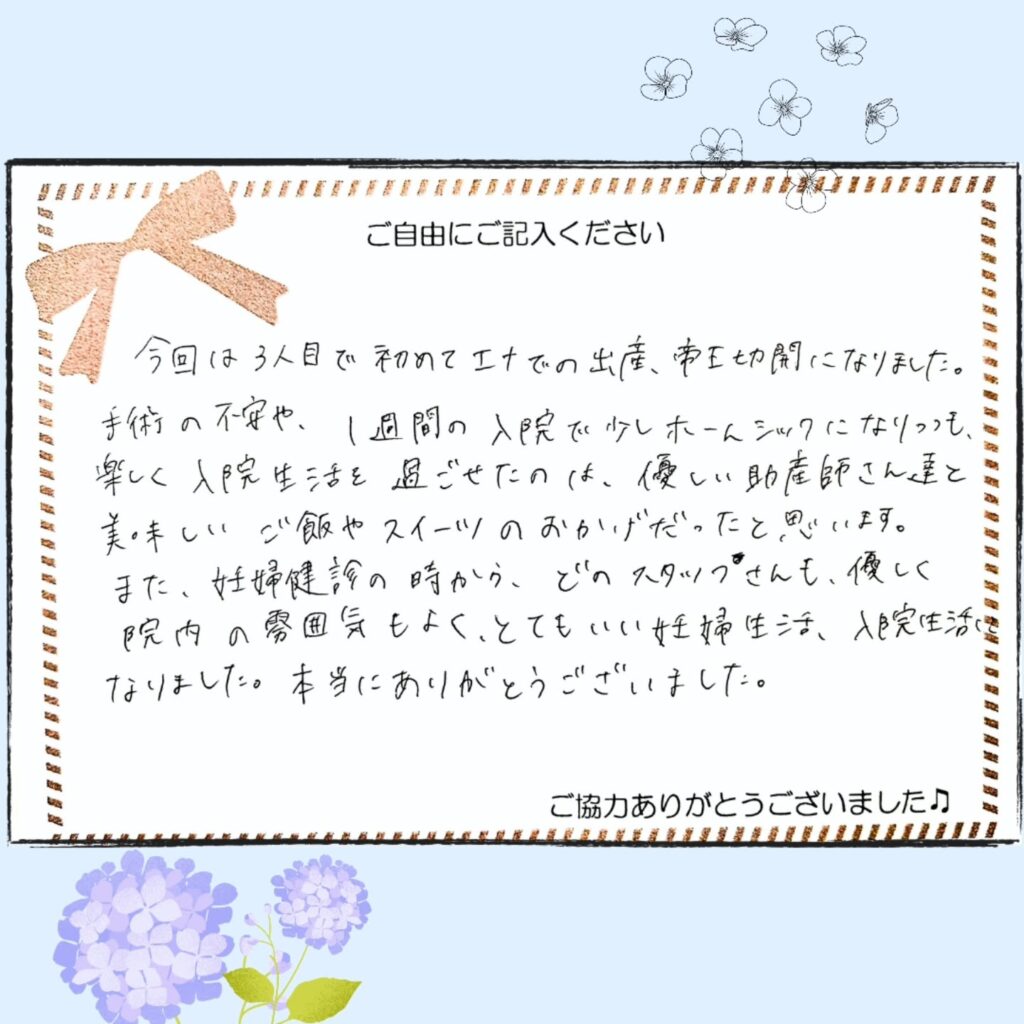 ご自由にご記入ください
今回は3人目で初めてエナでの出産、帝王切開になりました。
手術の不安や、1週間の入院で少しホームシックになりつつも、
楽しく入院生活を過ごせたのは、優しい助産師さん達と
美味しいご飯やスイーツのおかげだったと思います。
また、妊婦健診の時から、どのスタッフさんも、優しく
院内の雰囲気もよく、とてもいい妊婦生活、入院生活に
なりました。本当にありがとうございました。
ご協力ありがとうございました♫